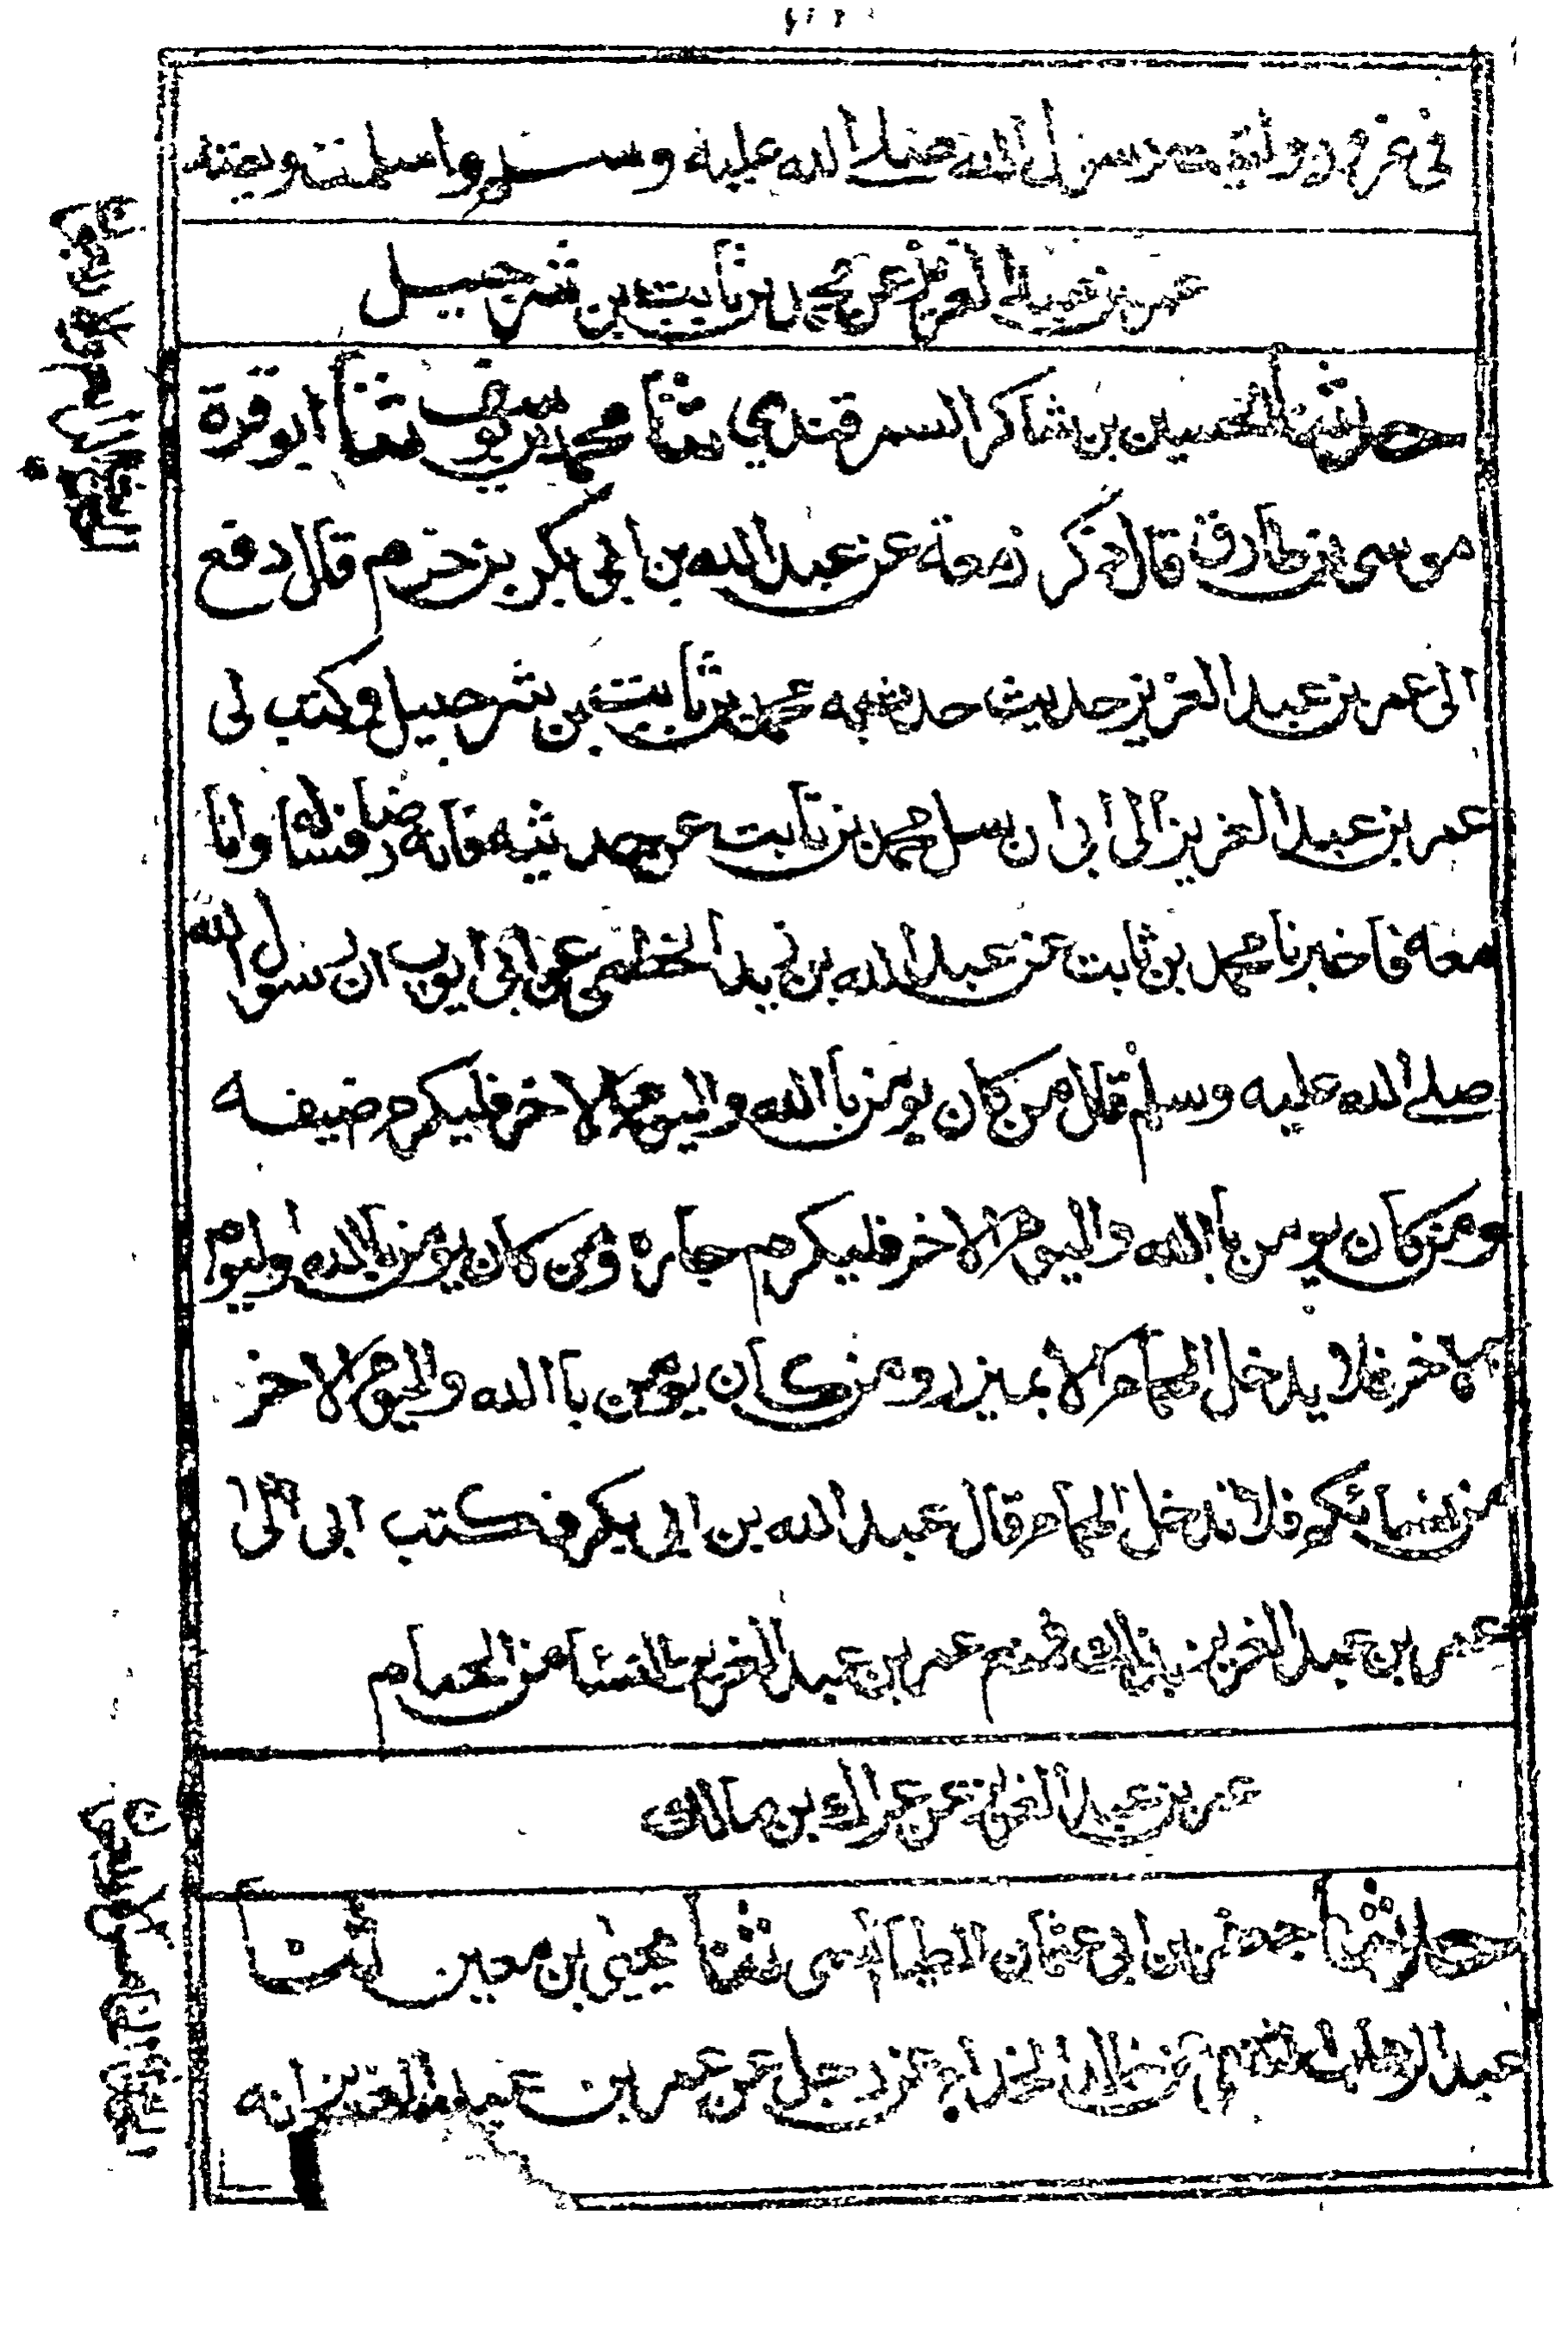 رسول الله صلى الله عليه وسلم واسلمت وبعته
عمر بن عبد العزيز عن محمد بن ثابت بن شرحبيل
حدثنا الحسين بن شاكر السمرقندي ثنا محمد بن يوسف ثنا ابو قرة
موسى بن طارق قال ذكر زمعة عن عبد الله بن ابي بكر بن حزم قال دفع
الى عمر بن عبد العزيز حديث حدثهبه محمد بن ثابت بن شرحبيل وكتب لى
عمر بن عبد العزيز الى ابى ان سل محمد بن ثابت عن حديثه فانه رضا فسله وانا
معه فاخبرنا محمد بن ثابت عن عبد الله بن يزيد الخطمى عن ابى ايوب ان رسول الله
صلى الله عليه وسلم قال من كان يومن باالله واليوم الاخر فليكرم ضيفه
ومن كان يومن باالله واليوم الاخر فليكرم جاره ومن كان يومن باالله وليوم
الاخر فلا يدخل الحمام الا بميزر ومن كان يومن باالله واليوم الاخر
من نسائكم فلا تدخل الحمام قال عبد الله بن ابى بكر فكتب ابى الى
عمر بن عبد العزيز بذالك فمنع عمر بن عبد العزيز النسا من الحمام
عمر بن عبد العزيز عن عراك بن مالك
حدثنا جعفر بن ابى عثمان الطيالسى ثنا يحيى بن معين ثنا
عبد الوهاب الثقفى عن خالد الحذا عن رجل عن عمر بن عبد العزيز انه